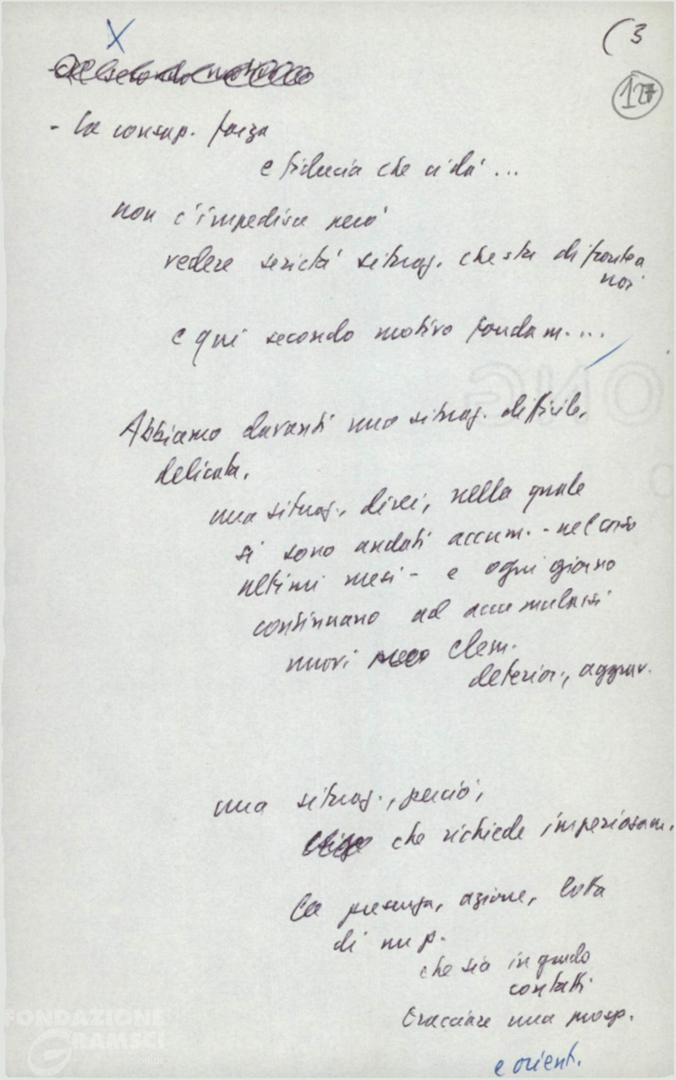 X
( 3
127
- La consap. forza
e fiducia che ci dà ...
non c'impedisce però
vedere serietà situaz. che sta di fronte a
noi
e qui secondo motivo fondam. ...
Abbiamo davanti una situaz. difficile,
delicata,
una situaz., direi, nella quale
si sono andati accum. - nel corso
ultimi mesi - e ogni giorno
continuano ad accumularsi
nuovi elem.
deterior., aggrav.
una situaz., perciò,
che richiede imperiosam.
la presenza, azione, lotta
di un p.
che sia in grado
contatti
tracciare una prosp.
e orient.
FONDAZIONE
GRAMSCI